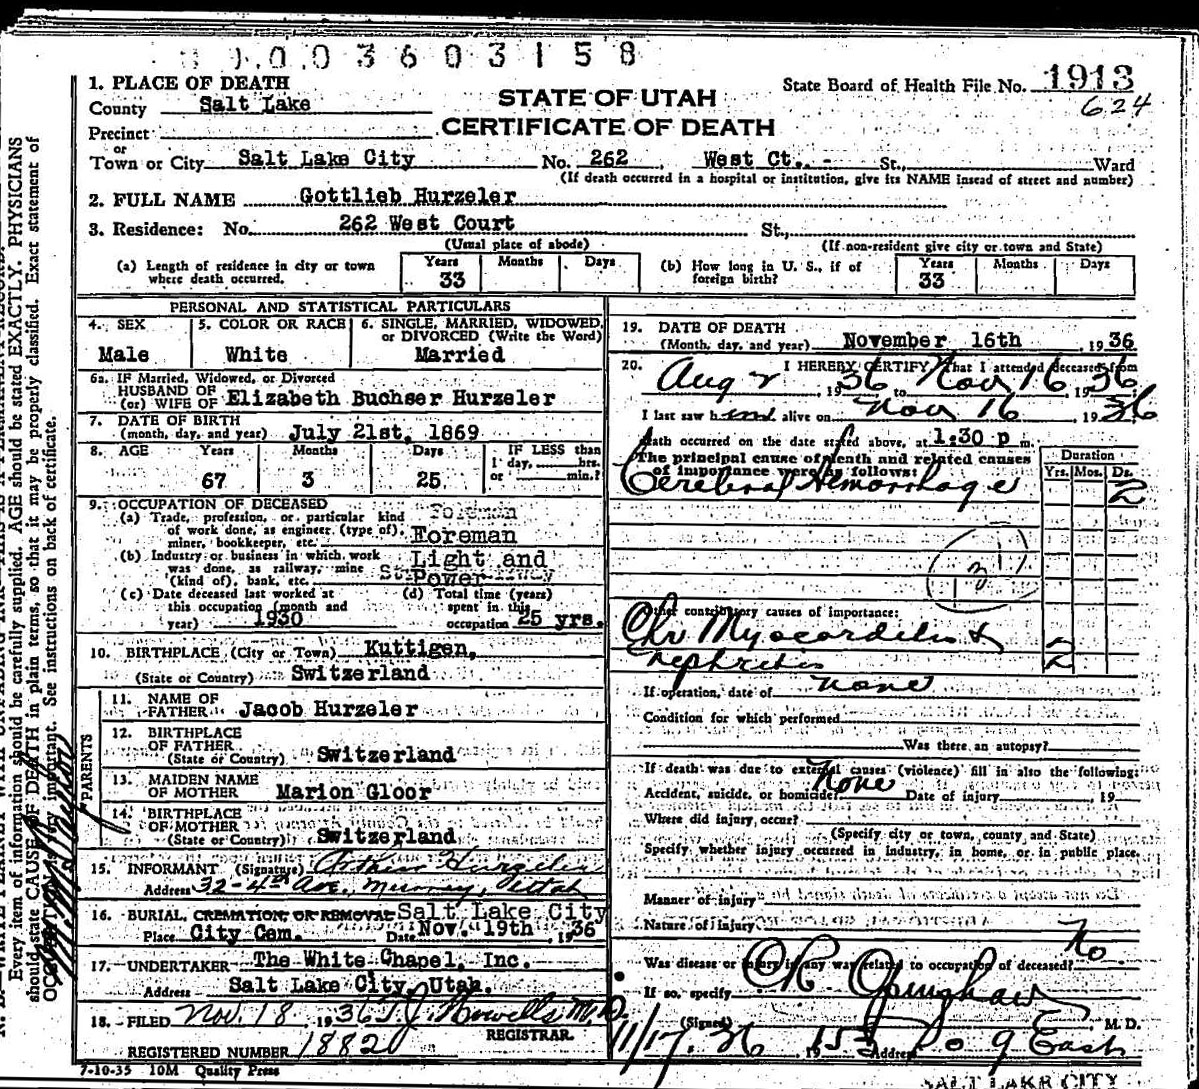 0003603158
1. PLACE OF DEATH
State Board of Health File No. 1913
County Salt Lake
624
STATE OF UTAH
CERTIFICATE OF DEATH
Precinct
or
Town or City Salt Lake City No. 262 West Ct. St., Ward
(If death occurred in a hospital or institution, give its NAME insead of street and number)
2. FULL NAME Gottlieb Hurzeler
3. Residence: No. 262 West Court St.,
(Usual place of abode) (If non-resident give city or town and State)
(a) Length of residence in city or town where death occurred. Years 33 Months Days
(b) How long in U. S., if of foreign birth? Years 33 Months Days
PERSONAL AND STATISTICAL PARTICULARS
4. SEX Male
5. COLOR OR RACE White
6. SINGLE, MARRIED, WIDOWED, or DIVORCED (Write the Word) Married
6a. IF Married, Widowed, or Divorced
HUSBAND OF
(or) WIFE OF Elizabeth Buchser Hurzeler
7. DATE OF BIRTH
(month, day, and year) July 21st, 1869
8. AGE Years Months Days IF LESS than
1 day, hrs.
67 3 25 or min.?
9. OCCUPATION OF DECEASED
(a) Trade, profession, or particular kind
of work done, as engineer (type of),
miner, bookkeeper, etc. Foreman
(b) Industry or business in which work
was done, as railway, mine
(kind of), bank, etc. Light and
Power
(c) Date deceased last worked at
this occupation (month and
year) 1930
(d) Total time (years)
spent in this
occupation 25 yrs.
10. BIRTHPLACE (City or Town) Kuttigen,
(State or Country) Switzerland
PARENTS
11. NAME OF
FATHER Jacob Hurzeler
12. BIRTHPLACE
OF FATHER
(State or Country) Switzerland
13. MAIDEN NAME
OF MOTHER Marion Gloor
14. BIRTHPLACE
OF MOTHER
(State or Country) Switzerland
15. INFORMANT (Signature) Arthur Hurzeler
Address 32-4th Ave, Murray, Utah
16. BURIAL, CREMATION, OR REMOVAL Salt Lake City
Place City Cem. Date Nov. 19th, 1936
17. UNDERTAKER The White Chapel, Inc.
Address Salt Lake City, Utah.
18. FILED Nov. 18 1936 T.J. Howells M.D.
REGISTRAR.
REGISTERED NUMBER 1882
7-10-35 10M Quality Press
19. DATE OF DEATH
(Month, day, and year) November 16th, 1936
20. I HEREBY CERTIFY, That I attended deceased from
Aug 2, 1936 to Nov 16 1936
I last saw him alive on Nov 16 1936
death occurred on the date stated above, at 1:30 p m.
The principal cause of death and related causes
of importance were as follows:
Duration
Yrs. Mos. Ds.
Cerebral Hemorrhage 2
Other contributory causes of importance:
Chr Myocarditis &
nephritis 2
If operation, date of none
Condition for which performed
Was there an autopsy?
If death was due to external causes (violence) fill in also the following:
Accident, suicide, or homicide? None Date of injury 19
Where did injury occur?
(Specify city or town, county and State)
Specify whether injury occurred in industry, in home, or in public place.
Manner of injury
Nature of injury
Was disease or injury in any way related to occupation of deceased? No
If so, specify
(Signed) M. D.
11/17, 36 19 Address 153 So 9 East
SALT LAKE CITY
Every item of information should be carefully supplied. AGE should be stated EXACTLY. PHYSICIANS
should state CAUSE OF DEATH in plain terms, so that it may be properly classified. Exact statement of
OCCUPATION is very important. See instructions on back of certificate.